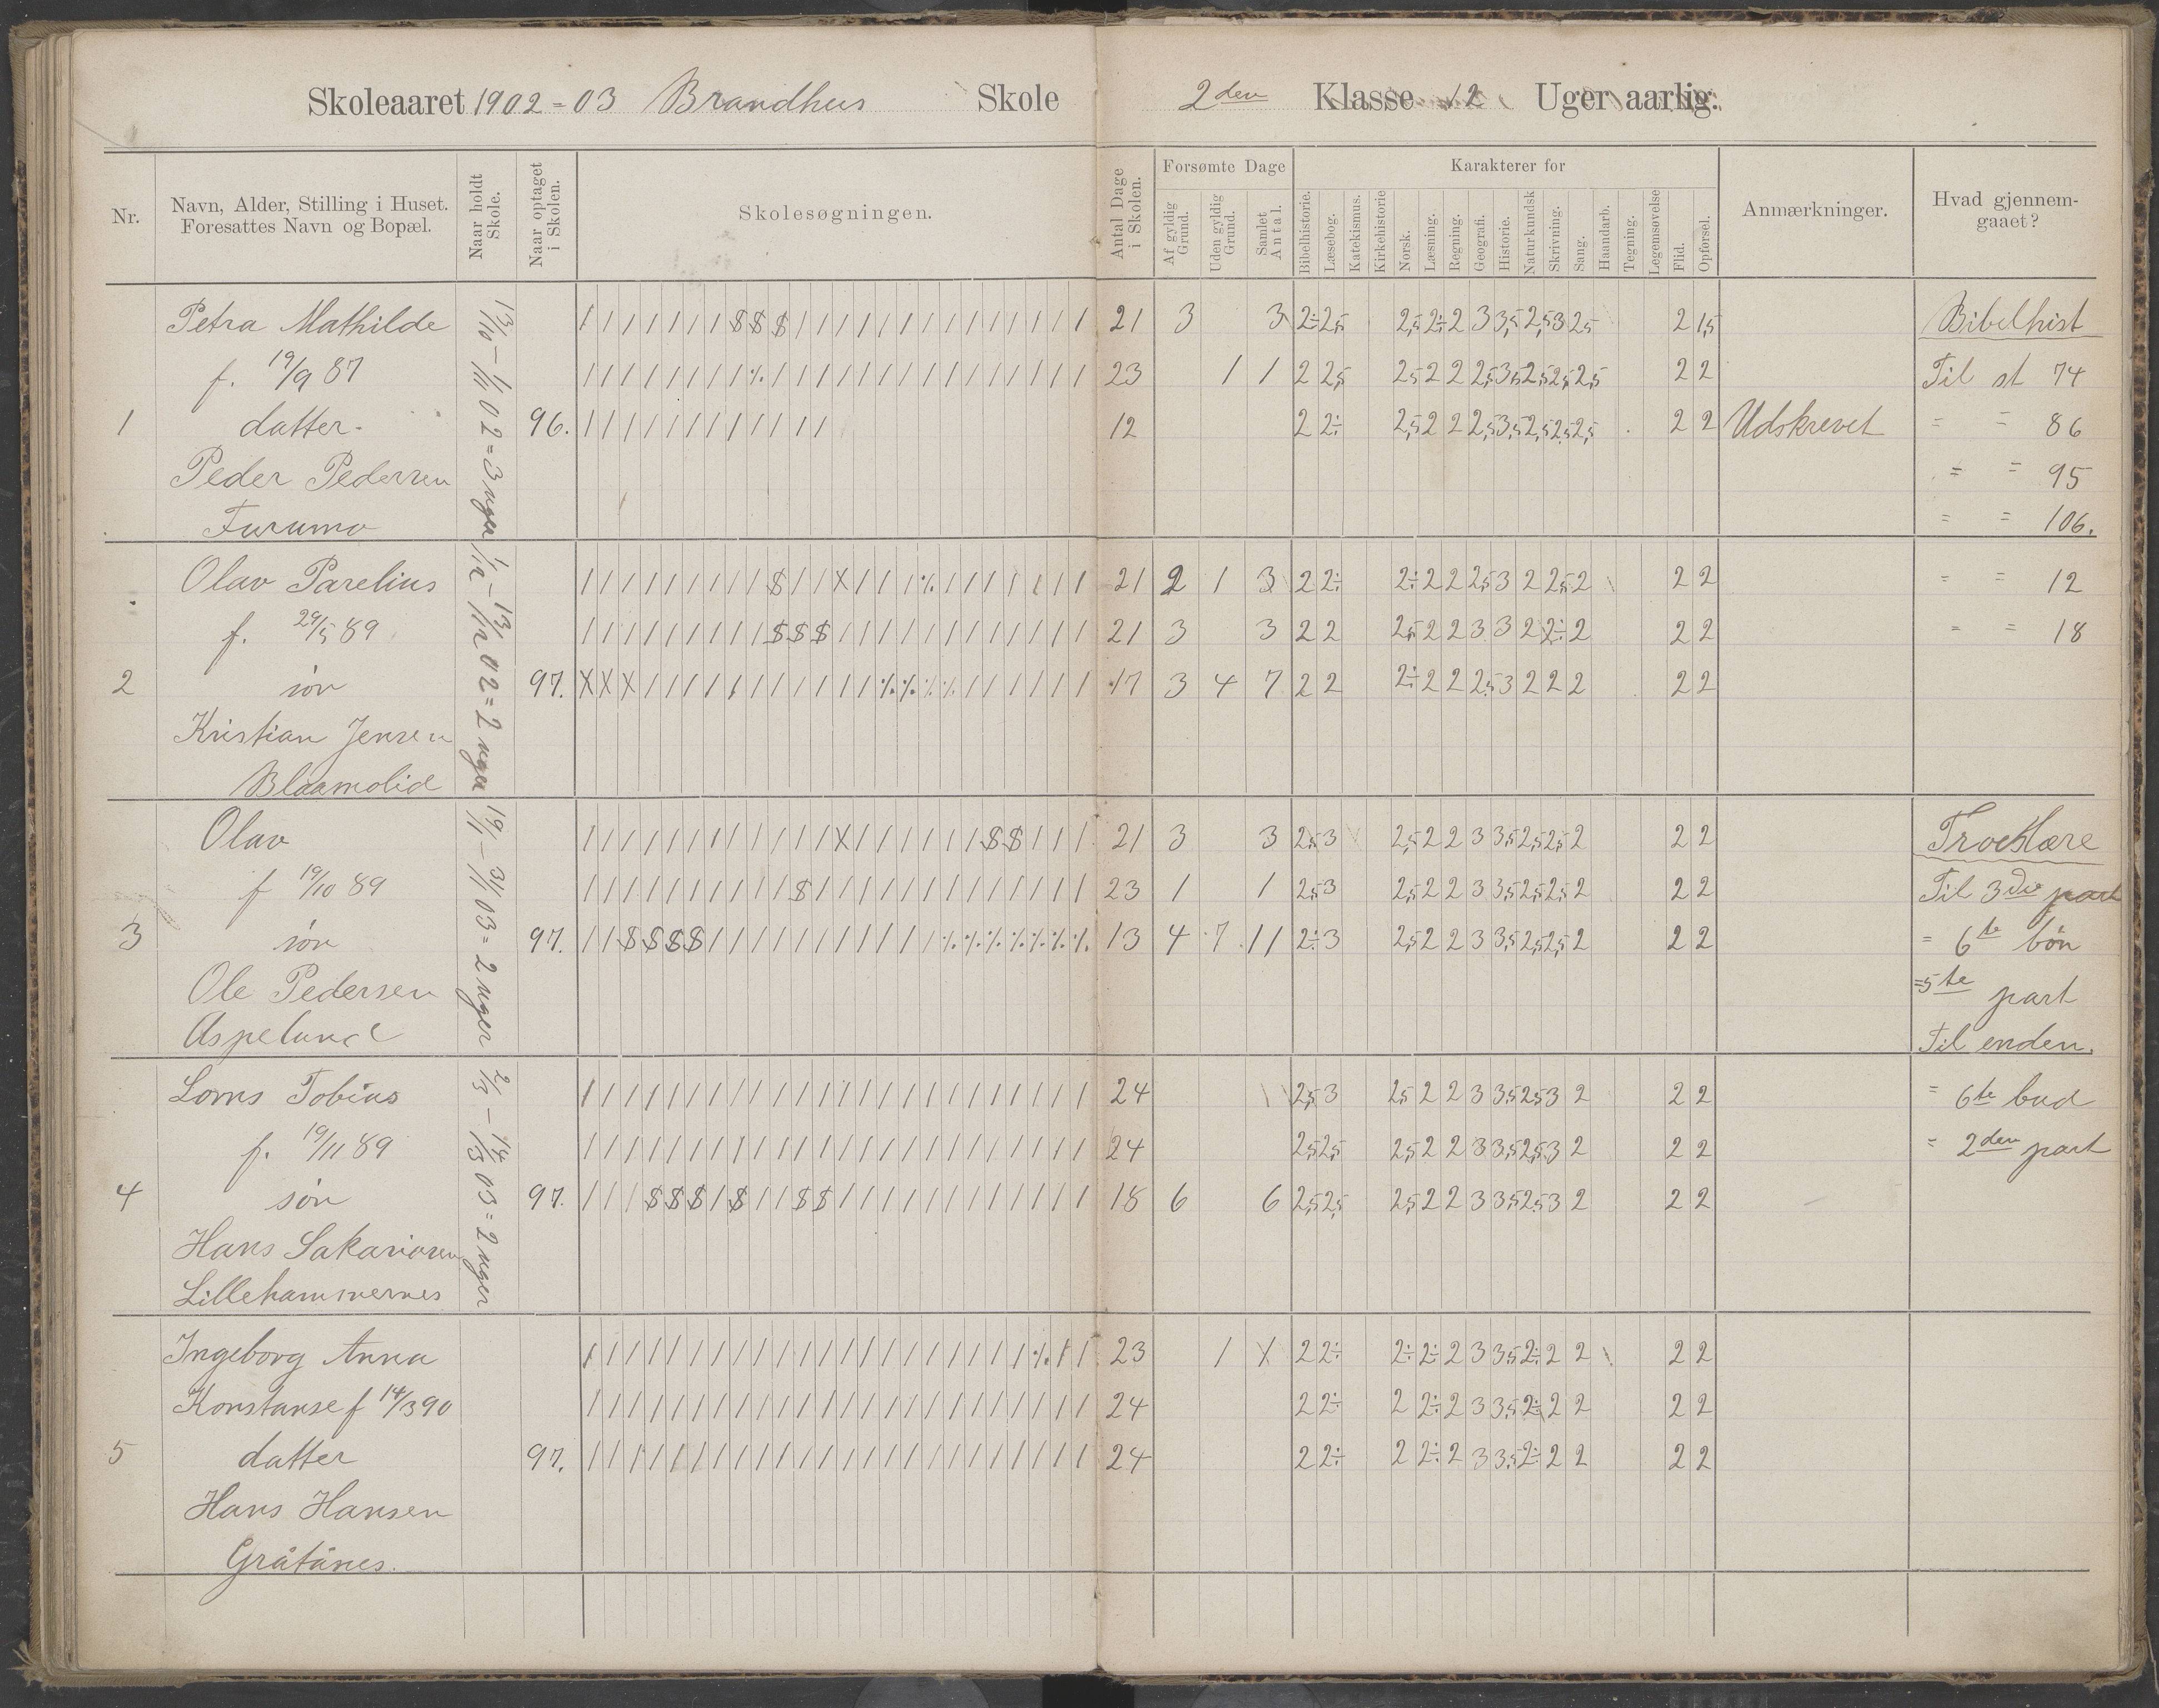 Skoleaaret 1902=03 Brandhus Skole 2den Klasse 12 Uger aarlig.
Nr.
Navn, Alder, Stilling i Huset. Foresattes Navn og Bopæl.
Naar holdt Skole.
Naar optaget i Skolen.
Skolesøgningen.
Antal Dage i Skolen.
Forsømte Dage
Af gyldig Grund.
Uden gyldig Grund.
Samlet Antal.
Karakterer for
Bibelhistorie.
Læsebog.
Katekismus.
Kirkehistorie
Norsk.
Læsning.
Regning.
Geografi.
Historie.
Naturkundsk
Skrivning.
Sang.
Haandarb.
Tegning.
Legemsøvelse
Flid.
Opførsel.
Anmærkninger.
Hvad gjennemgaaet?
13/10 – 1/11 02 = 3 uger
1/12 – 13/12 02 = 2 uger
19/1 – 31/1 03 = 2 uger
2/3 – 14/3 03 = 2 uger
Petra Mathilde / / / / / / / $ $ $ / / / / / / / / / / / / / / 21 3 3 2÷ 2,5 2,5 2÷ 2 3 3,5 2,5 3 2,5 2 1,5 Bibelhist
f. 19/9 87 / / / / / / / / ./. / / / / / / / / / / / / / / / 23 1 1 2 2,5 2,5 2 2 2,5 3,5 2,5 2,5 2,5 2 2 Til st 74
1 datter. 96. / / / / / / / / / / / / 12 2 2÷ 2,5 2 2 2,5 3,5 2,5 2,5 2,5 2 2 Udskrevet = = 86
Peder Pedersen = = 95
Furumo = = 106.
Olav Parelius / / / / / / / / / $ / / X / / / ./. / / / / / / / 21 2 1 3 2 2÷ 2÷ 2 2 2,5 3 2 2,5 2 2 2 = = 12
f. 29/5 89 / / / / / / / / / $ $ $ / / / / / / / / / / / / 21 3 3 2 2 2,5 2 2 3 3 2 2÷ 2 2 2 = = 18
2 søn 97. X X X / / / / / / / / / / / ./. ./. ./. ./. / / / / / / 17 3 4 7 2 2 2÷ 2 2 2,5 3 2 2 2 2 2
Kristian Jensen
Blaamolid
Olav / / / / / / / / / / / / X / / / / / / $ $ / / / 21 3 3 2,5 3 2,5 2 2 3 3,5 2,5 2,5 2 2 2 Troeslære
f 19/10 89 / / / / / / / / / / $ / / / / / / / / / / / / / 23 1 1 2,5 3 2,5 2 2 3 3,5 2,5 2,5 2 2 2 Til 3die part
3 søn 97. / / $ $ $ $ / / / / / / / / / / / ./. ./. ./. ./. ./. ./. ./. 13 4 7 11 2÷ 3 2,5 2 2 3 3,5 2,5 2,5 2 2 2 = 6te bøn
Ole Pedersen = 5te part
Aspelund Til enden.
Lorns Tobias / / / / / / / / / / / / / / / / / / / / / / / / 24 2,5 3 2,5 2 2 3 3,5 2,5 3 2 2 2 = 6te bud
f. 19/11 89 / / / / / / / / / / / / / / / / / / / / / / / / 24 2,5 2,5 2,5 2 2 3 3,5 2,5 3 2 2 2 = 2den part
4 søn 97. / / / $ $ $ / $ / / $ $ / / / / / / / / / / / / 18 6 6 2,5 2,5 2,5 2 2 3 3,5 2,5 3 2 2 2
Hans Sakariasen
Lillehammernes
Ingeborg Anna / / / / / / / / / / / / / / / / / / / / / ./. / / 23 1 1 2 2÷ 2÷ 2÷ 2 3 3,5 2÷ 2 2 2 2
Konstanse f 14/3 90 / / / / / / / / / / / / / / / / / / / / / / / / 24 2 2÷ 2 2÷ 2 3 3,5 2÷ 2 2 2 2
5 datter 97. / / / / / / / / / / / / / / / / / / / / / / / / 24 2 2÷ 2 2÷ 2 3 3,5 2÷ 2 2 2 2
Hans Hansen
Gråtånes.